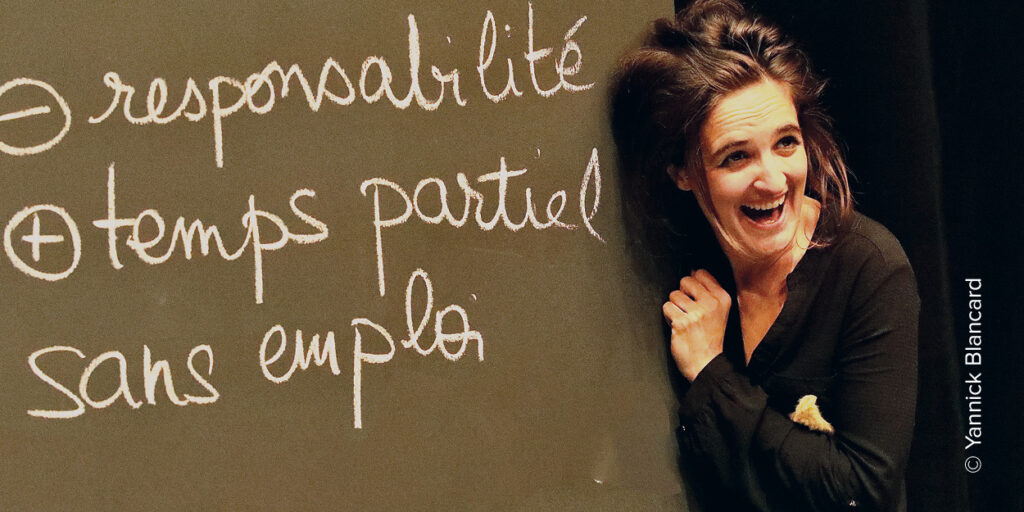 ⊖ responsabilité
⊕ temps partiel
sans emploi
© Yannick Blancard